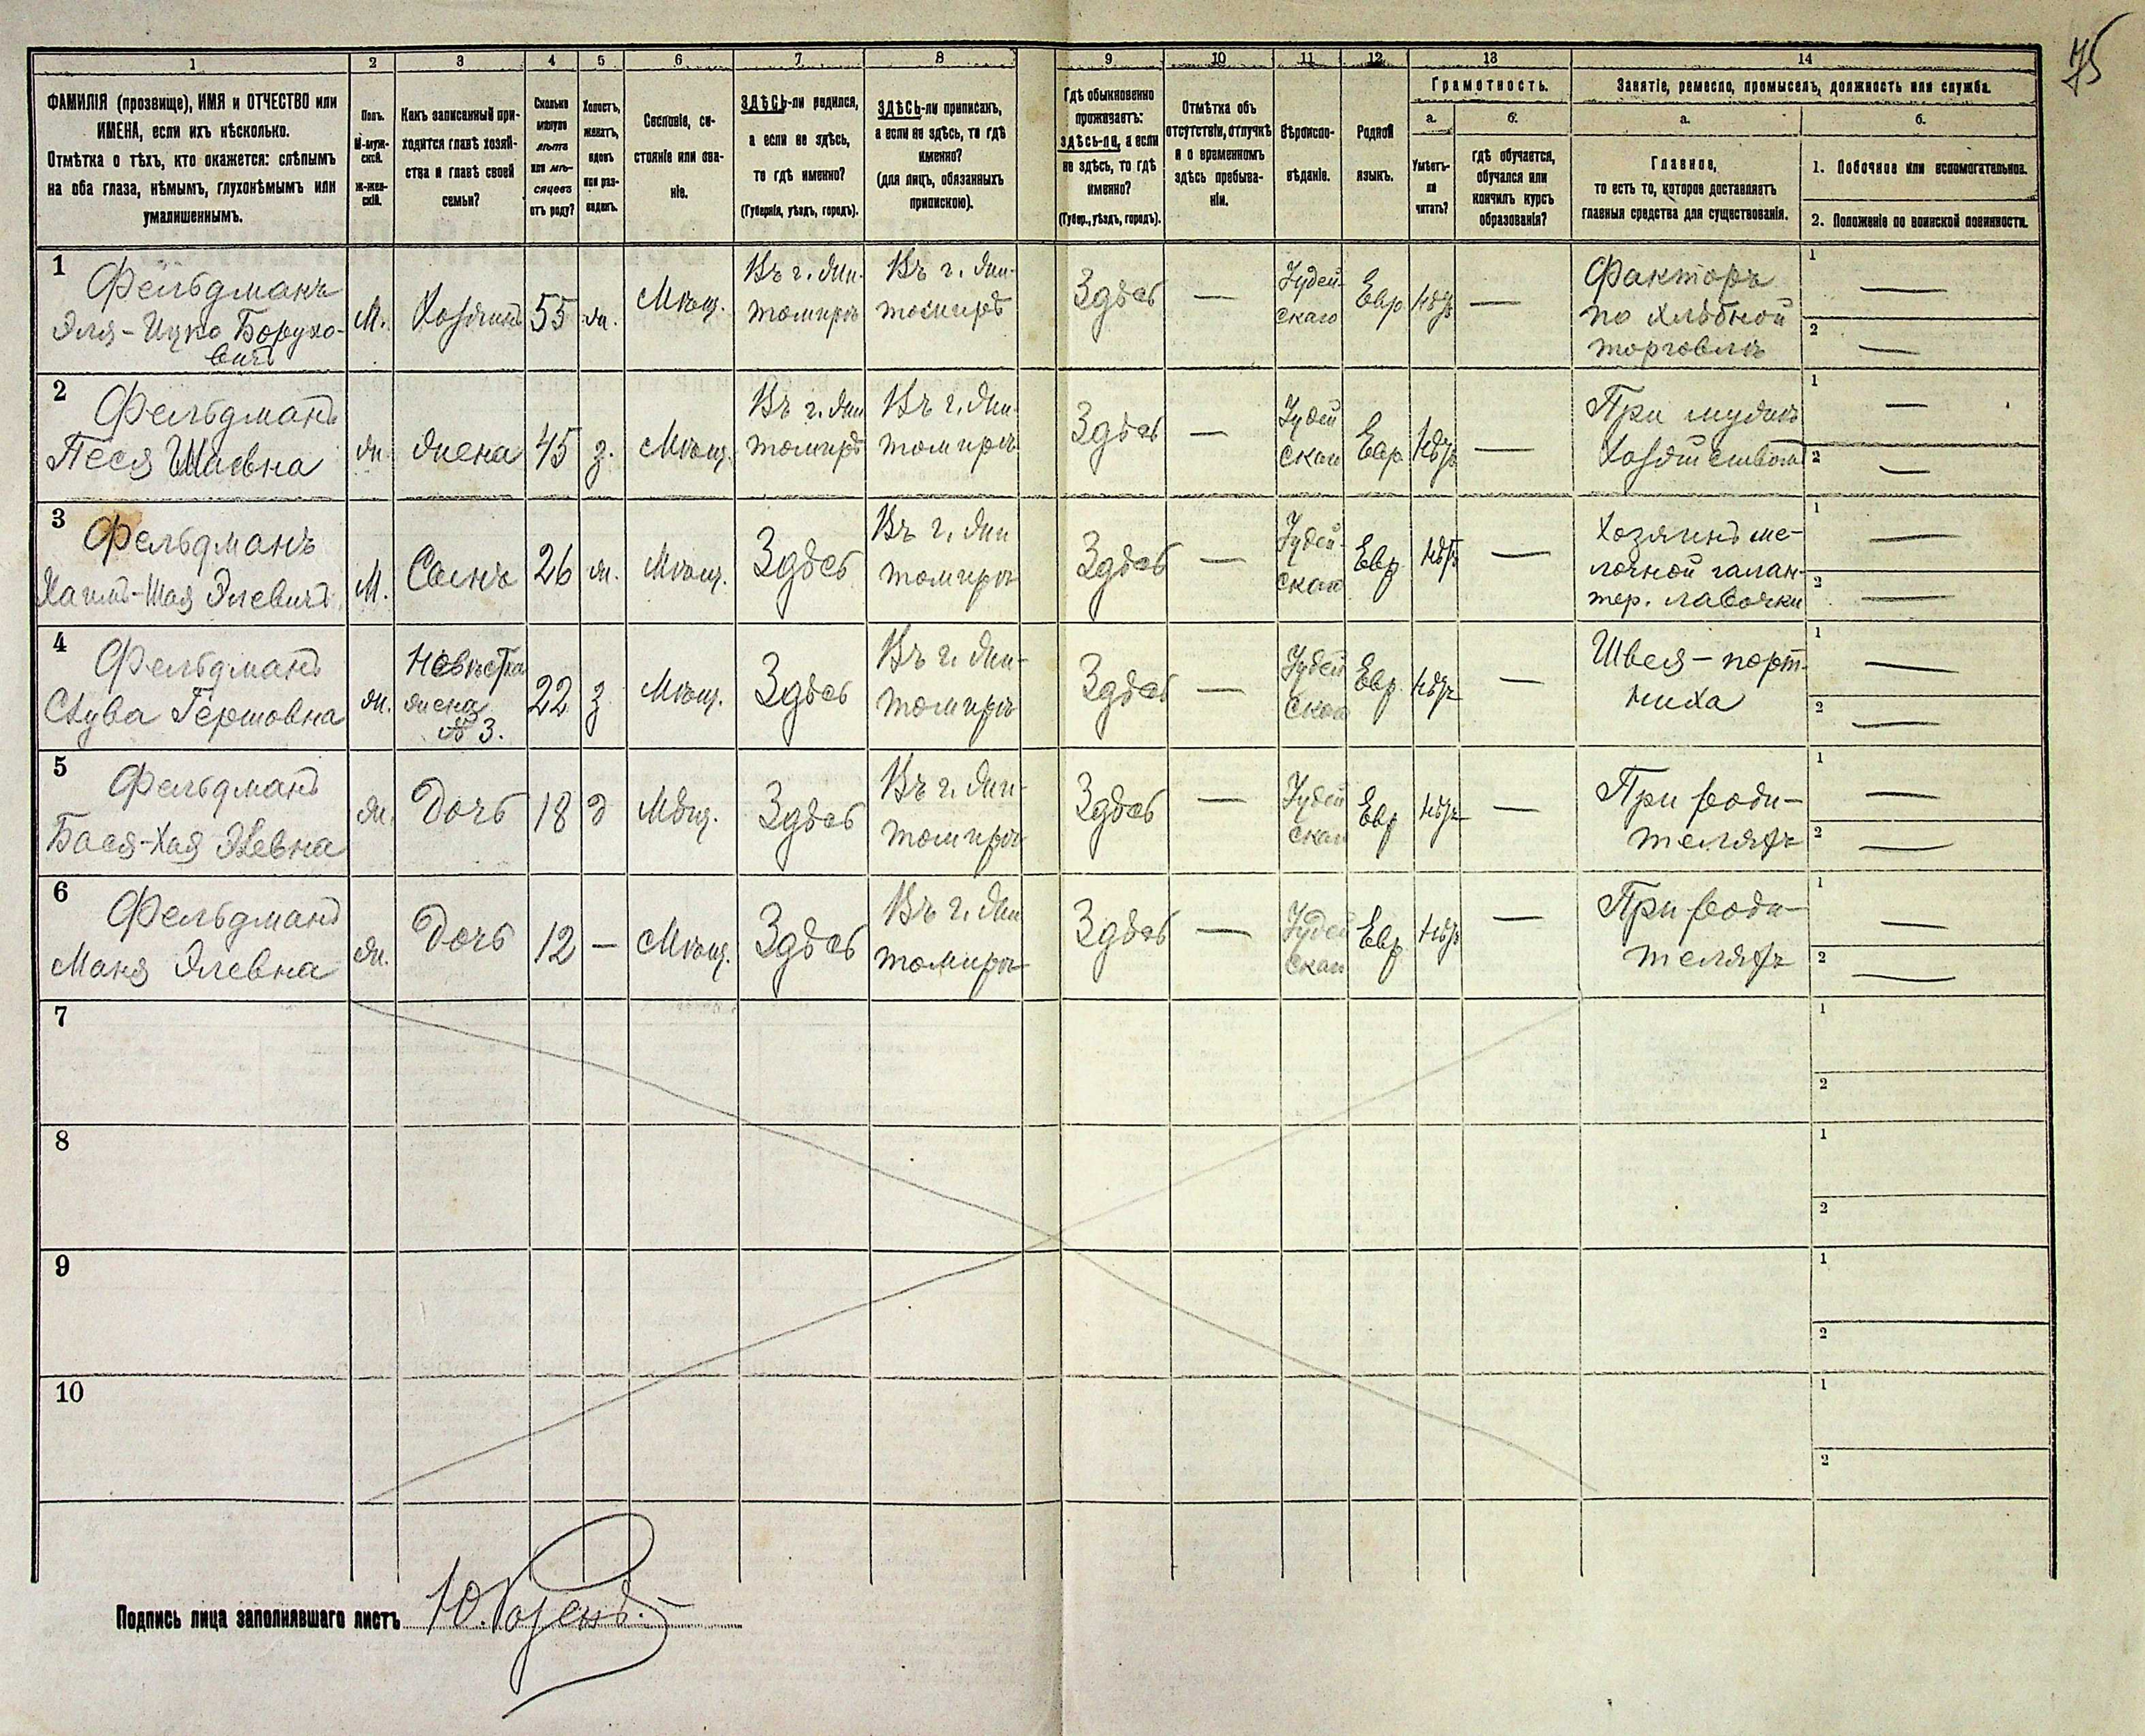 75
1 2 3 4 5 6 7 8 9 10 11 12 13 14
ФАМИЛІЯ (прозвище), ИМЯ и ОТЧЕСТВО или
ИМЕНА, если ихъ нѣсколько.
Отмѣтка о тѣхъ, кто окажется: слѣпымъ
на оба глаза, нѣмымъ, глухонѣмымъ или
умалишеннымъ.
Полъ.
М-муж-
ской.
Ж-жен-
скій.
Какъ записанный при-
ходится главѣ хозяй-
ства и главѣ своей
семьи?
Сколько
минуло
лѣтъ
или мѣ-
сяцевъ
отъ роду?
Холостъ,
женатъ,
вдовъ
или раз-
веденъ.
Сословіе, со-
стояніе или зва-
ніе.
ЗДѢСЬ-ли родился,
а если не здѣсь,
то гдѣ именно?
(Губернія, уѣздъ, городъ).
ЗДѢСЬ-ли приписанъ,
а если не здѣсь, то гдѣ
именно?
(для лицъ, обязанныхъ
припискою).
Гдѣ обыкновенно
проживаетъ:
здѣсь-ли, а если
не здѣсь, то гдѣ
именно?
(Губер., уѣздъ, городъ).
Отмѣтка объ
отсутствіи, отлучкѣ
и о временномъ
здѣсь пребыва-
ніи.
Вѣроиспо-
вѣданіе.
Родной
языкъ.
Грамотность.
а.
Умѣетъ-
ли
читать?
б.
гдѣ обучается,
обучался или
кончилъ курсъ
образованія?
Занятіе, ремесло, промыселъ, должность или служба.
а.
Главное,
то есть то, которое доставляетъ
главныя средства для существованія.
б.
1. Побочное или вспомогательное.
2. Положеніе по воинской повинности.
1
Фельдманъ
Эля-Ицко Борухо-
вичъ
М.
Хозяинъ
55
ж.
Мѣщ.
Въ г. Жи-
томирѣ
Въ г. Жи-
томирѣ
Здѣсь
—
Іудей-
скаго
Евр
нѣтъ
—
Факторъ
по хлѣбной
торговлѣ
1 —
2 —
2
Фельдманъ
Песя Шаевна
ж.
жена
45
з.
Мѣщ.
Въ г. Жи
томирѣ
Въ г. Жи-
томирѣ
Здѣсь
—
Іудей
скаго
Евр
нѣтъ
—
При мужѣ
хозяйством
1 —
2 —
3
Фельдманъ
Хаимъ-Шая Элевичъ
М.
Сынъ
26
ж.
Мѣщ.
Здѣсь
Въ г. Жи
томирѣ
Здѣсь
—
Іудей-
скаго
Евр
нѣтъ
—
Хозяинъ ме-
лочной галан-
тер. лавочки
1 —
2 —
4
Фельдманъ
Слува Гершовна
ж.
Невѣстка
жена
№ 3.
22
з
Мѣщ.
Здѣсь
Въ г. Жи-
томирѣ
Здѣсь
—
Іудей
скаго
Евр
нѣтъ
—
Швея-порт-
ниха
1 —
2 —
5
Фельдманъ
Бася-Хая Элевна
ж.
Дочь
18
д
Мѣщ.
Здѣсь
Въ г. Жи-
томирѣ
Здѣсь
—
Іудей
скаго
Евр
нѣтъ
—
При роди-
теляхъ
1 —
2 —
6
Фельдманъ
Маня Элевна
ж.
Дочь
12
—
Мѣщ.
Здѣсь
Въ г. Жи
томирѣ
Здѣсь
—
Іудей
скаго
Евр
нѣтъ
—
При роди-
теляхъ
1 —
2 —
7
1
2
8
1
2
9
1
2
10
1
2
Подпись лица заполнявшаго листъ Ю. Розенъ.